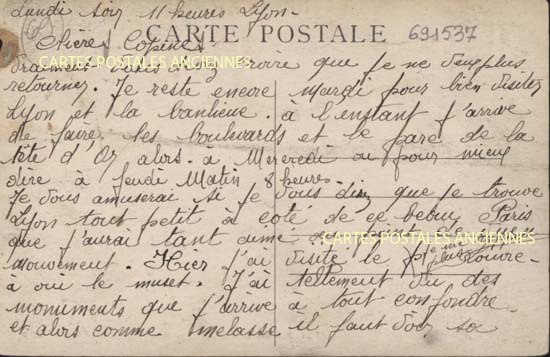 Lundi Soir 11 heures Lyon-
CARTE POSTALE
691537
Chères Copines
CARTES POSTALES ANCIENNES
Vraiment croire que je ne veux plus
retourner. Je reste encore mardi pour bien visiter
Lyon et la banlieue. à l'instant j'arrive
de faire les boulevards et le parc de la
tête d'Or alors à Mercredi ou pour mieux
dire à Jeudi Matin 8 heures
Je vous amuserai si je vous dis que je trouve
Lyon tout petit à coté de ce beau Paris
que j'aurai tant aimé
CARTES POSTALES ANCIENNES
mouvement. Hier j'ai visité le
à où le muset. J'ai tellement vu des
monuments que j'arrive à tout confondre
et alors comme melasse il faut voir sa